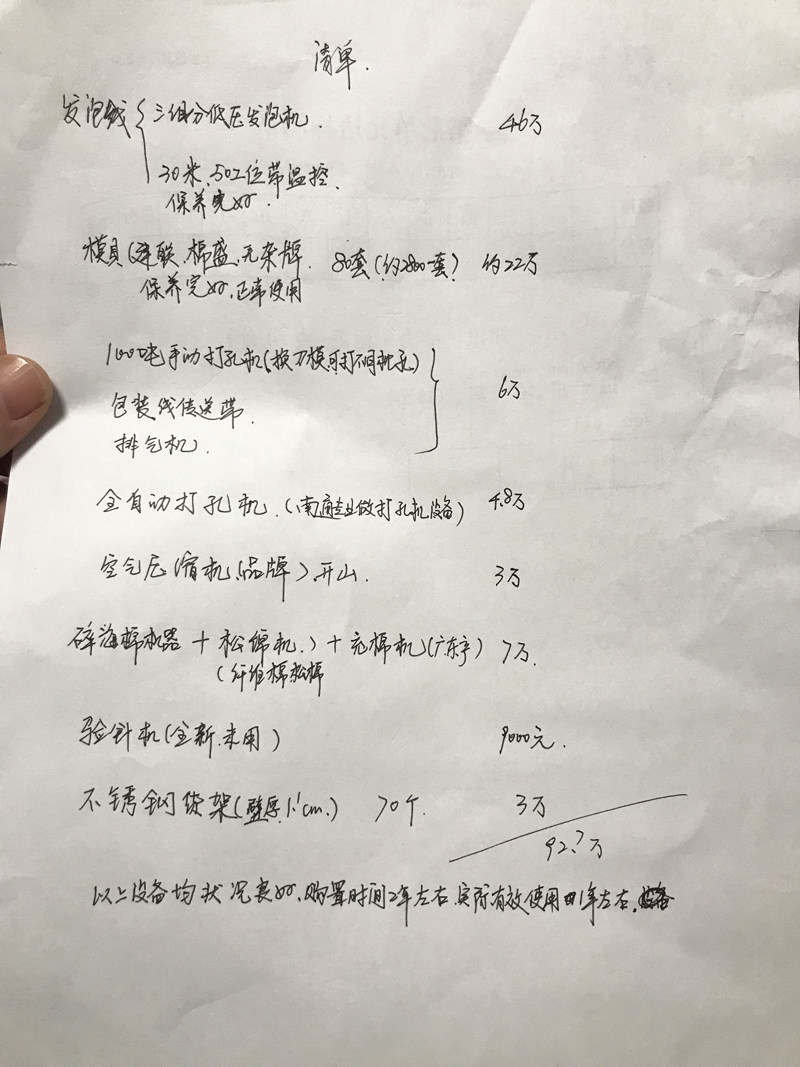 清单.
发泡线{三组分低压发泡机. 46万
30米、50工位带温控.
保养完好.
模具(连联、棉盛、无杂牌. 80套(约2800一套) 约22万
保养完好.正常使用
100吨手动打孔机(换刀模可打不同种孔)
包装线传送带. 6万
排气机.
全自动打孔机.(南通专业做打孔机设备) 4.8万
空气压缩机(品牌).开山. 3万
碎海棉机器 + 松绵机.) + 充棉机(广东产) 7万.
(纤维棉松棉
验针机(全新.未用) 9000元.
不锈钢货架(壁厚1.1cm.) 70个. 3万
92.7万
以上设备均状况良好.购置时间2年左右.实际有效使用1年左右.